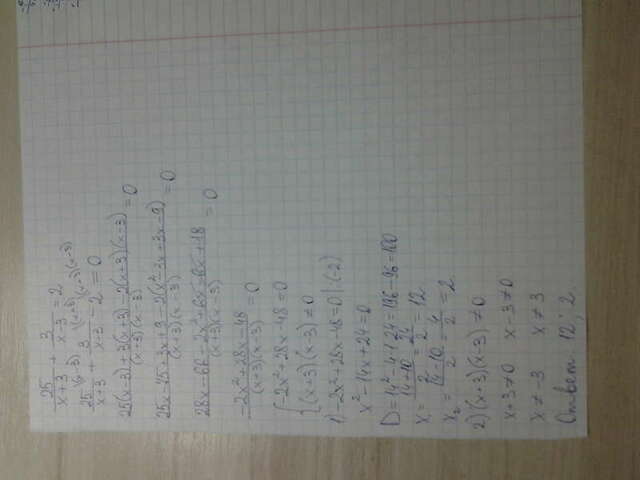 25/(x+3) + 3/(x-3) = 2
25/(x+3) (x-3) + 3/(x+3) (x+3) - 2 (x+3)(x-3) = 0
(25(x-3)+3(x+3)-2(x+3)(x-3))/((x+3)(x-3)) = 0
= 0
= 0
(-2x²+28x-48)/((x+3)(x-3)) = 0
{-2x²+28x-48=0
{(x+3)(x-3)≠0
1) -2x²+28x-48=0 |:(-2)
x²-14x+24=0
D=14²-4·1·24=196-96=100
x₁=(14+10)/2=24/2=12
x₂=(14-10)/2=4/2=2
2) (x+3)(x-3)≠0
x+3≠0 x-3≠0
x≠-3 x≠3
Ответ: 12; 2.